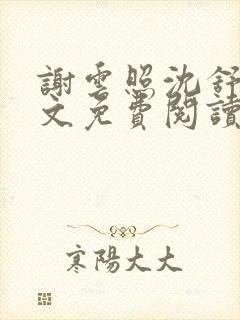 謝雲照沈舒
文免費閱讀
寒陽大大